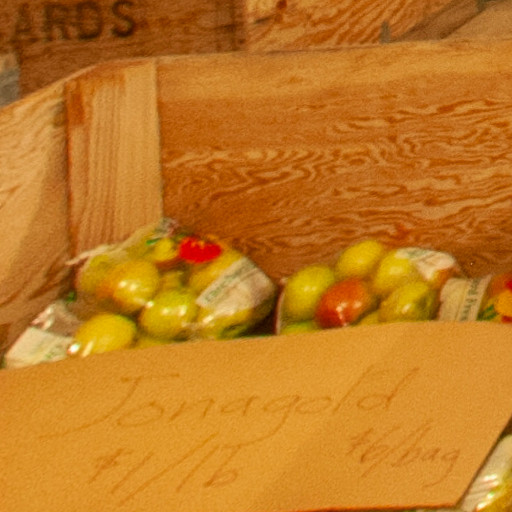 ARDS
Jonagold
$1/lb
$6/bag